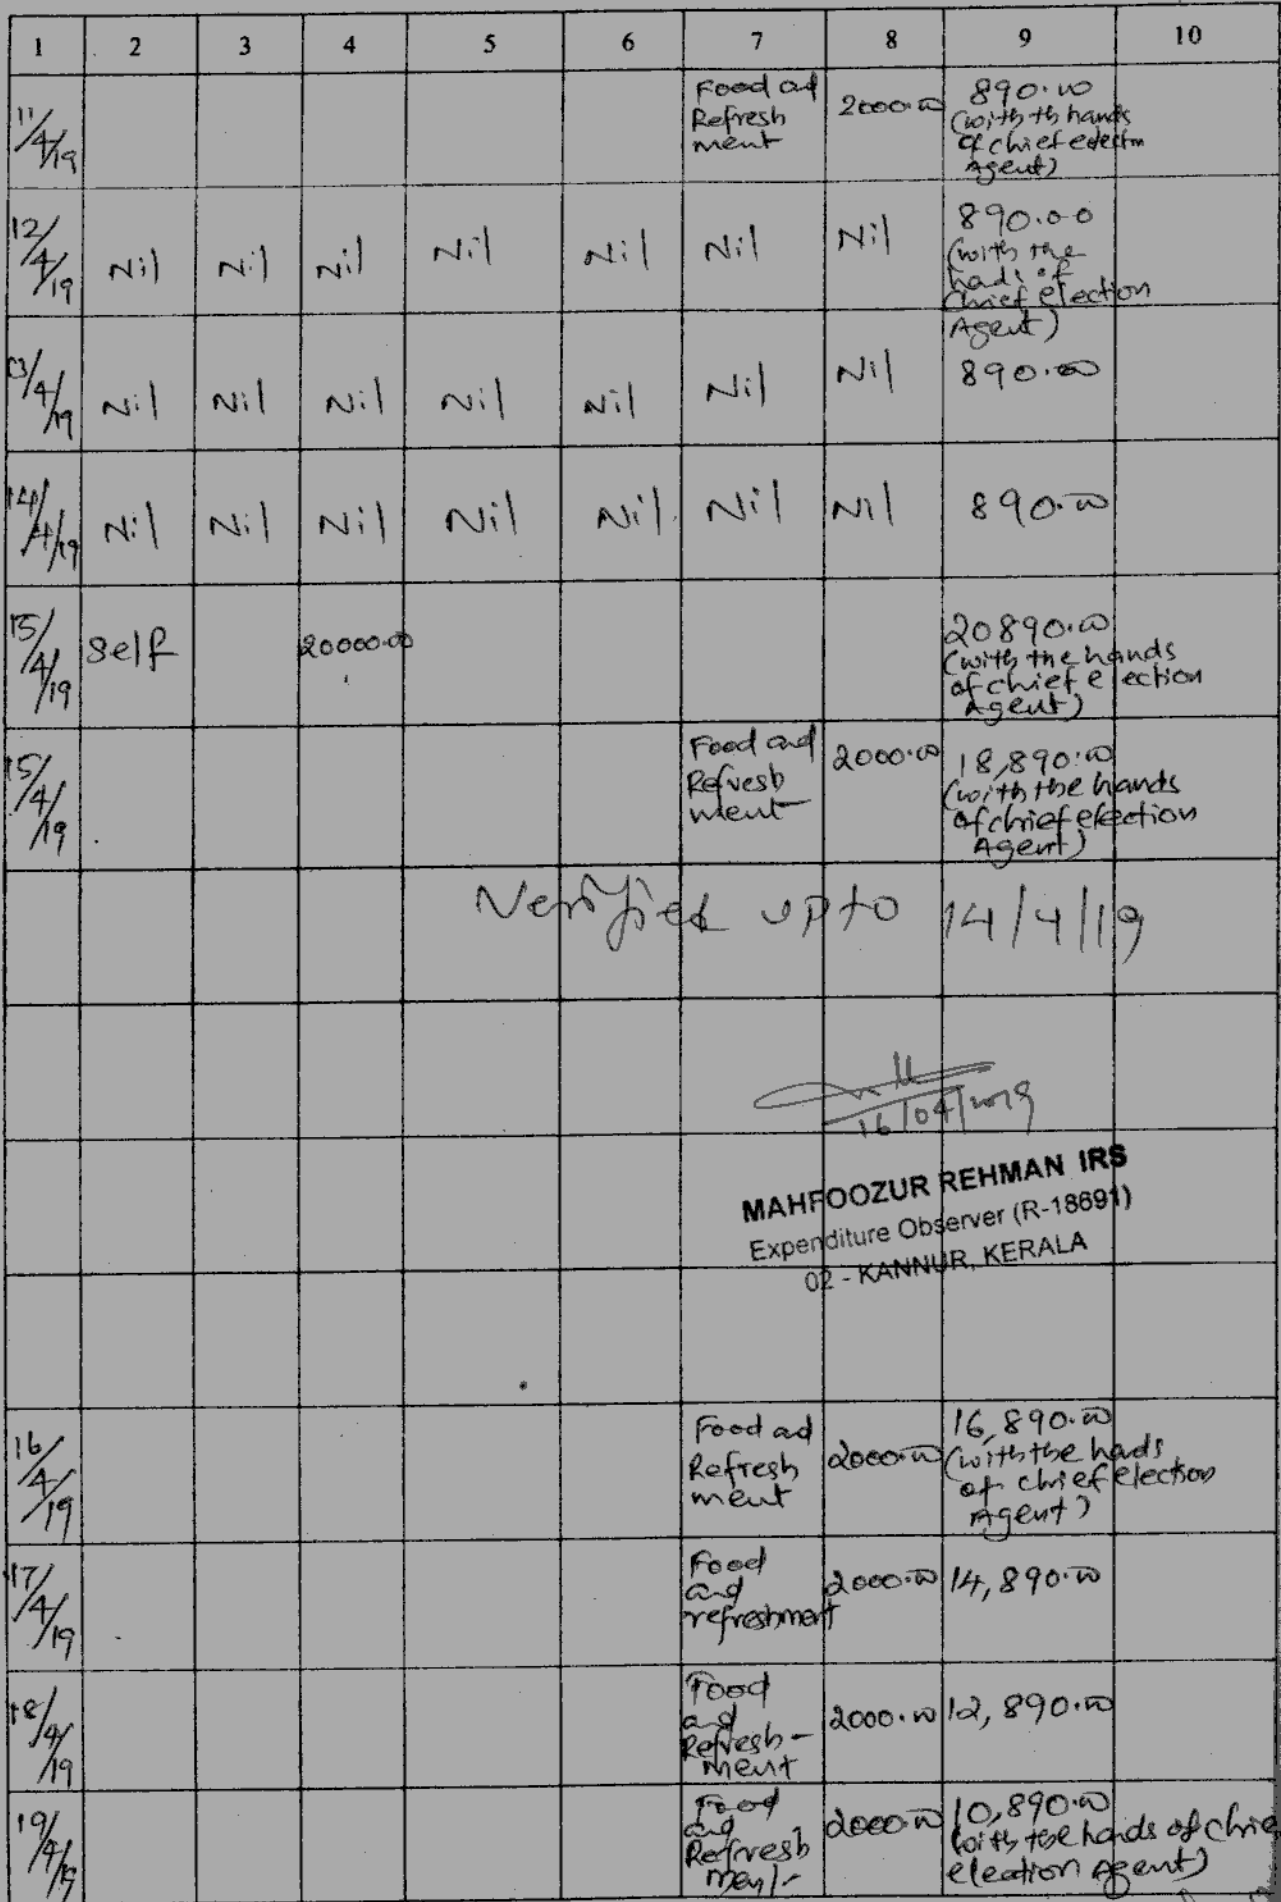 1 2 3 4 5 6 7 8 9 10
11/4/19 Food ad Refresh ment 2000.00 890.00 (with th hands of chief electn Agent)
12/4/19 Nil Nil Nil Nil Nil Nil Nil 890.00 (with the hads of Chief election Agent)
13/4/19 Nil Nil Nil Nil Nil Nil Nil 890.00
14/4/19 Nil Nil Nil Nil Nil Nil Nil 890.00
15/4/19 Self 20000.00 20890.00 (with the hands of chief election Agent)
15/4/19 Food and Refresh ment 2000.00 18,890.00 (with the hands of chief election Agent)
Verified upto 14/4/19
16/04/2019
MAHFOOZUR REHMAN IRS
Expenditure Observer (R-18691)
02 - KANNUR, KERALA
16/4/19 Food ad Refresh ment 2000.00 16,890.00 (with the hads of chief election Agent)
17/4/19 Food and refreshment 2000.00 14,890.00
18/4/19 Food and Refresh- ment 2000.00 12,890.00
19/4/19 Food and Refresh ment 2000.00 10,890.00 with the hands of chie election Agent)